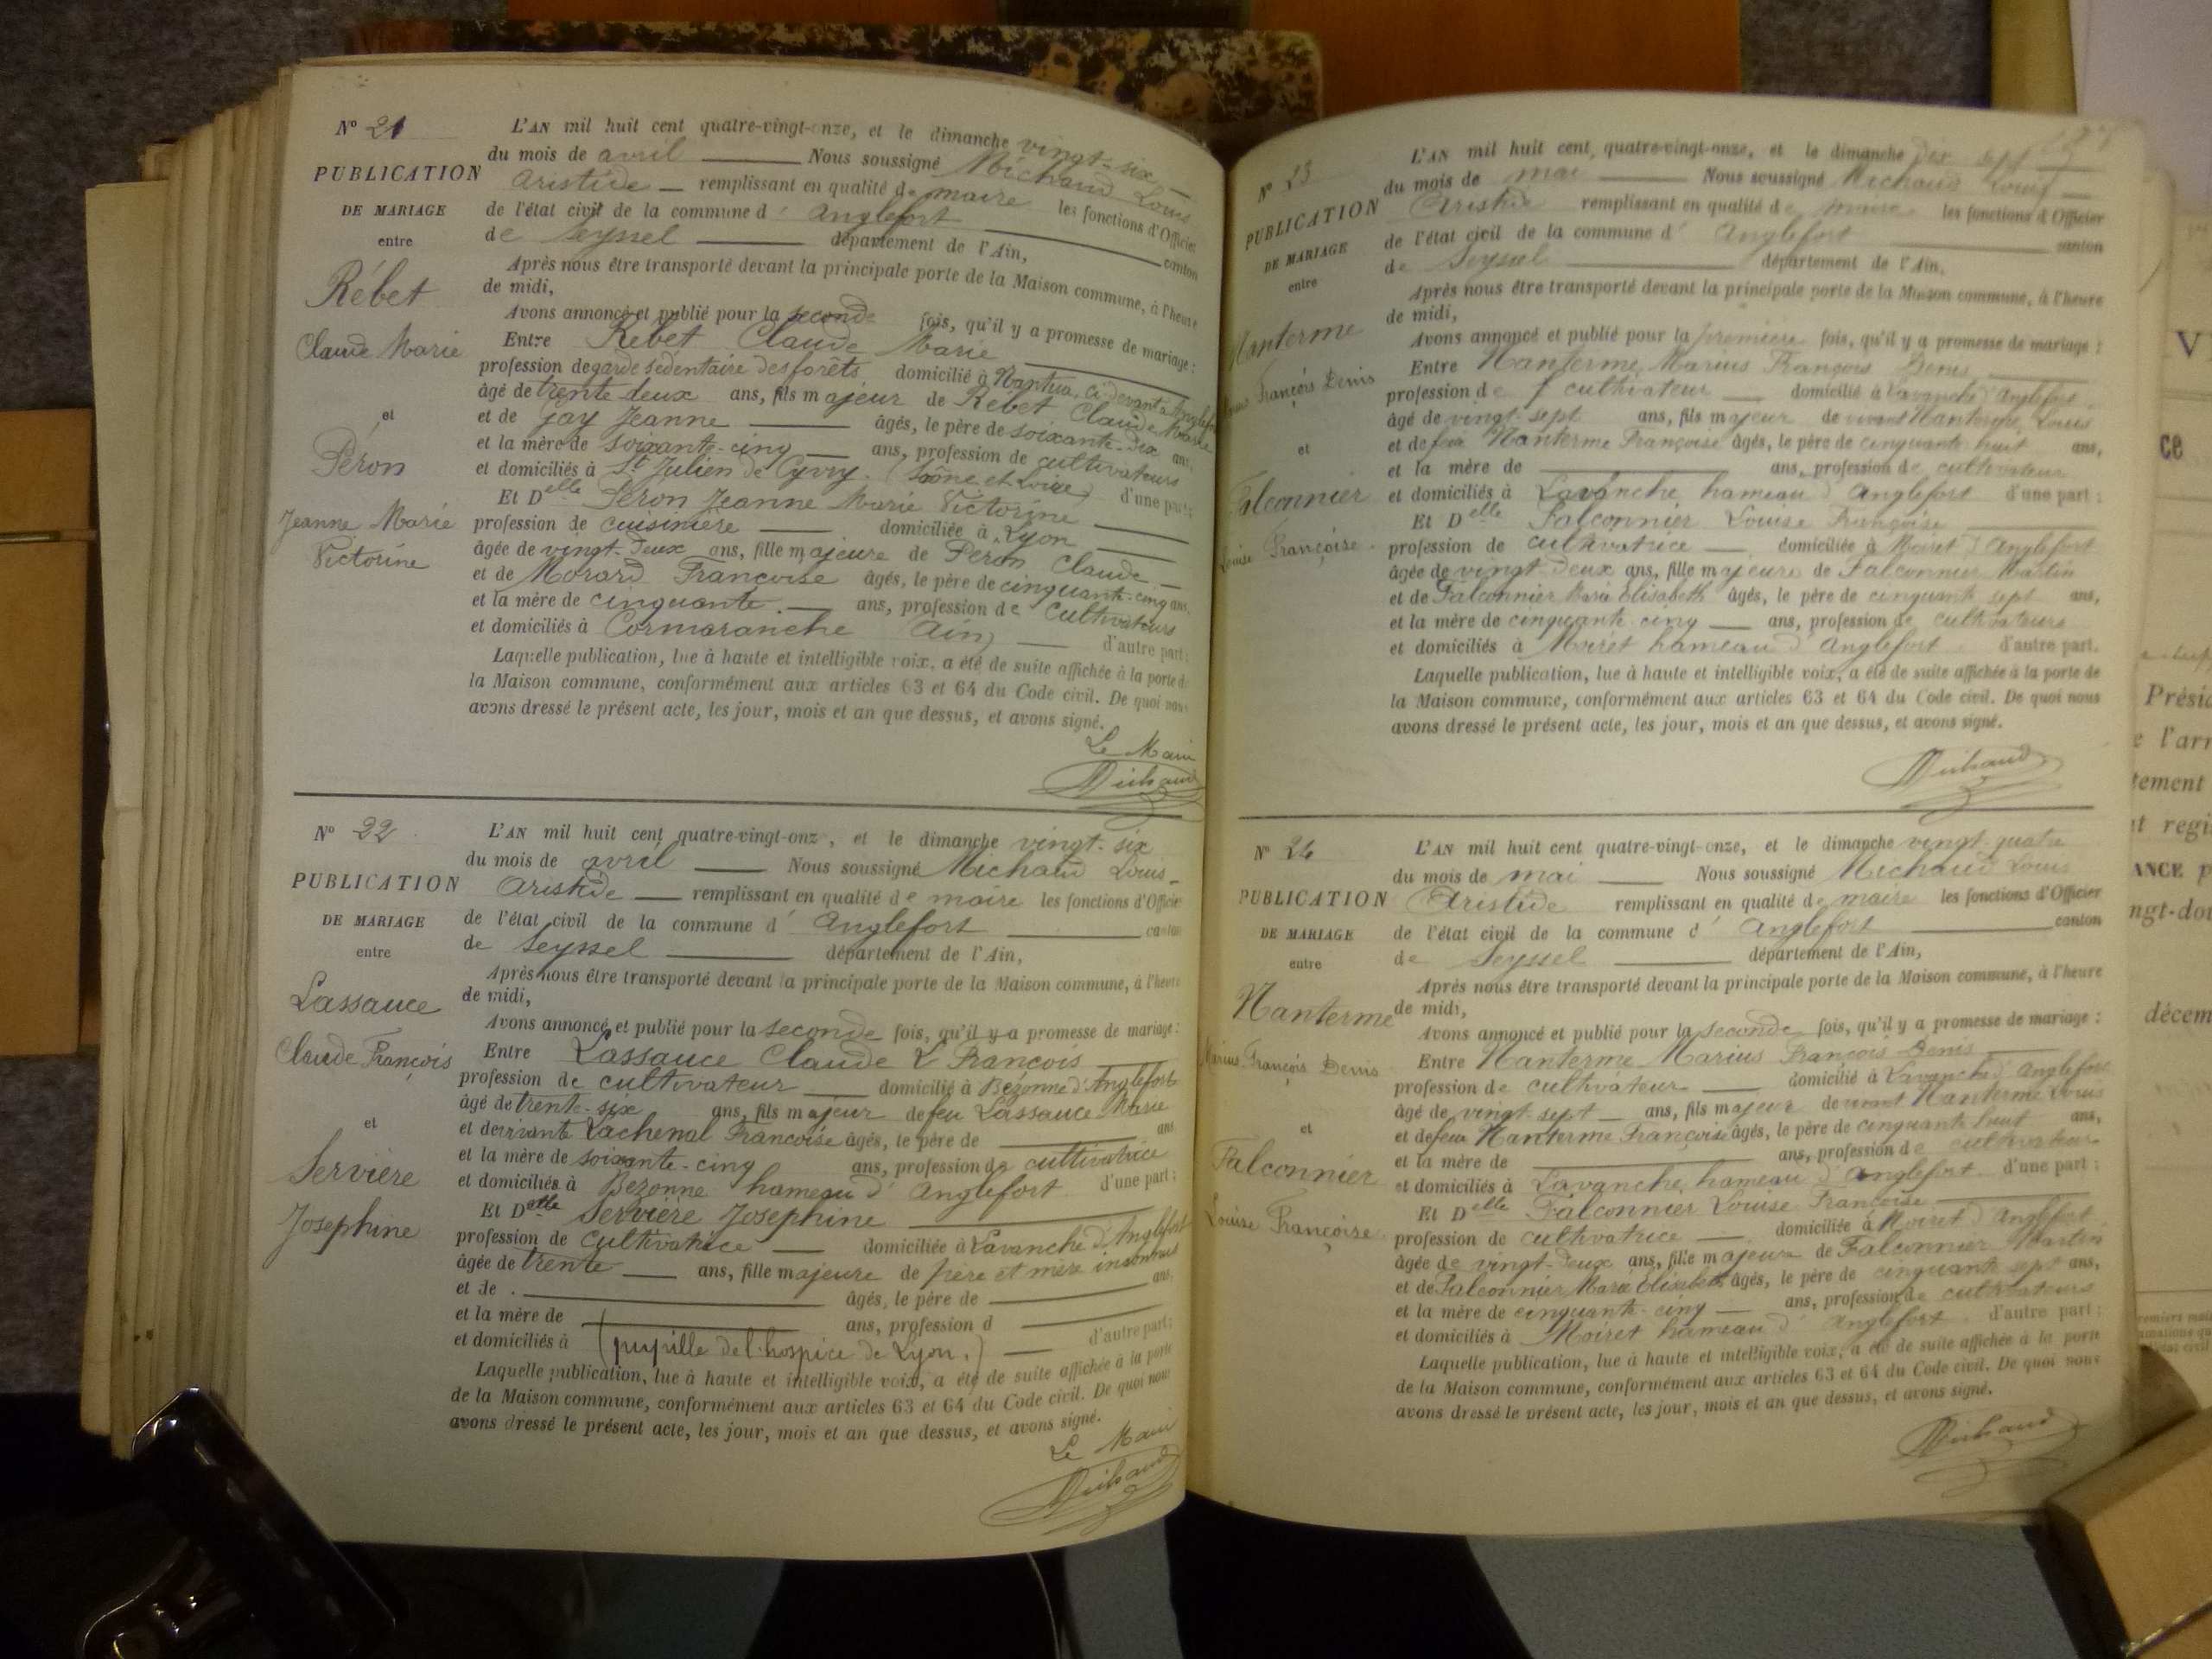 N° 21
PUBLICATION
DE MARIAGE
entre
Rébet
Claude Marie
et
Péron
Jeanne Marie
Victorine
L'AN mil huit cent quatre-vingt-onze, et le dimanche vingt-six
du mois de avril Nous soussigné Michaud Louis
Aristide remplissant en qualité de maire les fonctions d'Officier
de l'état civil de la commune d' Anglefort canton
de Seyssel département de l'Ain,
Après nous être transporté devant la principale porte de la Maison commune, à l'heure
de midi,
Avons annoncé et publié pour la seconde fois, qu'il y a promesse de mariage :
Entre Rebet Claude Marie
profession de garde sédentaire des forêts domicilié à Nantua, ci-devant à Anglefort
âgé de trente deux ans, fils majeur de Rebet Claude Marie
et de Gay Jeanne âgés, le père de soixante-dix ans,
et la mère de soixante-cinq ans, profession de cultivateurs
et domiciliés à St Julien de Cyvry. (Saône et Loire) d'une part;
Et Delle Péron Jeanne Marie Victorine
profession de cuisinière domiciliée à Lyon
âgée de vingt-deux ans, fille majeure de Péron Claude
et de Morard Françoise âgés, le père de cinquante-cinq ans,
et la mère de cinquante ans, profession de cultivateurs
et domiciliés à Cormaranche Ain) d'autre part;
Laquelle publication, lue à haute et intelligible voix, a été de suite affichée à la porte de
la Maison commune, conformément aux articles 63 et 64 du Code civil. De quoi nous
avons dressé le présent acte, les jour, mois et an que dessus, et avons signé.
Le Maire
Michaud
N° 22
PUBLICATION
DE MARIAGE
entre
Lassauce
Claude François
et
Servière
Josephine
L'AN mil huit cent quatre-vingt-onz , et le dimanche vingt-six
du mois de avril Nous soussigné Michaud Louis
Aristide remplissant en qualité de maire les fonctions d'Officier
de l'état civil de la commune d' Anglefort canton
de Seyssel département de l'Ain,
Après nous être transporté devant la principale porte de la Maison commune, à l'heure
de midi,
Avons annoncé et publié pour la seconde fois, qu'il y a promesse de mariage :
Entre Lassauce Claude François
profession de cultivateur domicilié à Bezonne d'Anglefort
âgé de trente-six ans, fils majeur de feu Lassauce Marie
et de vivante Lachenal Françoise âgés, le père de ans
et la mère de soixante-cinq ans, profession de cultivatrice
et domiciliés à Bezonne hameau d' Anglefort d'une part;
Et Delle Servière Josephine
profession de cultivatrice domiciliée à Lavanche d'Anglefort
âgée de trente ans, fille majeure de père et mère inconnus
et de . âgés, le père de ans,
et la mère de ans, profession d
et domiciliés à (pupille de l'hospice de Lyon.) d'autre part;
Laquelle publication, lue à haute et intelligible voix, a été de suite affichée à la porte
de la Maison commune, conformément aux articles 63 et 64 du Code civil. De quoi nous
avons dressé le présent acte, les jour, mois et an que dessus, et avons signé.
Le Maire
Michaud
N° 23
PUBLICATION
DE MARIAGE
entre
Nanterme
François Denis
et
Falconnier
Louise Françoise.
L'AN mil huit cent quatre-vingt-onze, et le dimanche dix sept
du mois de mai Nous soussigné Michaud Louis
Aristide remplissant en qualité de maire les fonctions d'Officier
de l'état civil de la commune d' Anglefort canton
de Seyssel département de l'Ain,
Après nous être transporté devant la principale porte de la Maison commune, à l'heure
de midi,
Avons annoncé et publié pour la première fois, qu'il y a promesse de mariage :
Entre Nanterme Marius François Denis
profession de cultivateur domicilié à Lavanche d'Anglefort
âgé de vingt-sept ans, fils majeur de vivant Nanterme Louis
et de feue Nanterme Françoise âgés, le père de cinquante-huit ans,
et la mère de ans, profession de cultivateur
et domiciliés à Lavanche hameau d' Anglefort d'une part;
Et Delle Falconnier Louise Françoise
profession de cultivatrice domiciliée à Moiret d'Anglefort
âgée de vingt-deux ans, fille majeure de Falconnier Martin
et de Falconnier Marie Elisabeth âgés, le père de cinquante sept ans,
et la mère de cinquante-cinq ans, profession de cultivateurs
et domiciliés à Moiret hameau d' Anglefort d'autre part.
Laquelle publication, lue à haute et intelligible voix, a été de suite affichée à la porte de
la Maison commune, conformément aux articles 63 et 64 du Code civil. De quoi nous
avons dressé le présent acte, les jour, mois et an que dessus, et avons signé.
Michaud
N° 24
PUBLICATION
DE MARIAGE
entre
Nanterme
Marius François Denis
et
Falconnier
Louise Françoise.
L'AN mil huit cent quatre-vingt-onze, et le dimanche vingt-quatre
du mois de mai Nous soussigné Michaud Louis
Aristide remplissant en qualité de maire les fonctions d'Officier
de l'état civil de la commune d' Anglefort canton
de Seyssel département de l'Ain,
Après nous être transporté devant la principale porte de la Maison commune, à l'heure
de midi,
Avons annoncé et publié pour la seconde fois, qu'il y a promesse de mariage :
Entre Nanterme Marius François Denis
profession de cultivateur domicilié à Lavanche d'Anglefort
âgé de vingt-sept ans, fils majeur de vivant Nanterme Louis
et de feue Nanterme Françoise âgés, le père de cinquante huit ans,
et la mère de ans, profession de cultivateur
et domiciliés à Lavanche hameau d' Anglefort d'une part;
Et Delle Falconnier Louise Françoise
profession de cultivatrice domiciliée à Moiret d'Anglefort
âgée de vingt-deux ans, fille majeure de Falconnier Martin
et de Falconnier Marie Elisabeth âgés, le père de cinquante sept ans,
et la mère de cinquante-cinq ans, profession de cultivateurs
et domiciliés à Moiret hameau d' Anglefort d'autre part;
Laquelle publication, lue à haute et intelligible voix, a été de suite affichée à la porte
de la Maison commune, conformément aux articles 63 et 64 du Code civil. De quoi nous
avons dressé le présent acte, les jour, mois et an que dessus, et avons signé.
Michaud
V
ce
Présid
e l'arr
tement
t regi
ANCE p
ngt-dou
décem